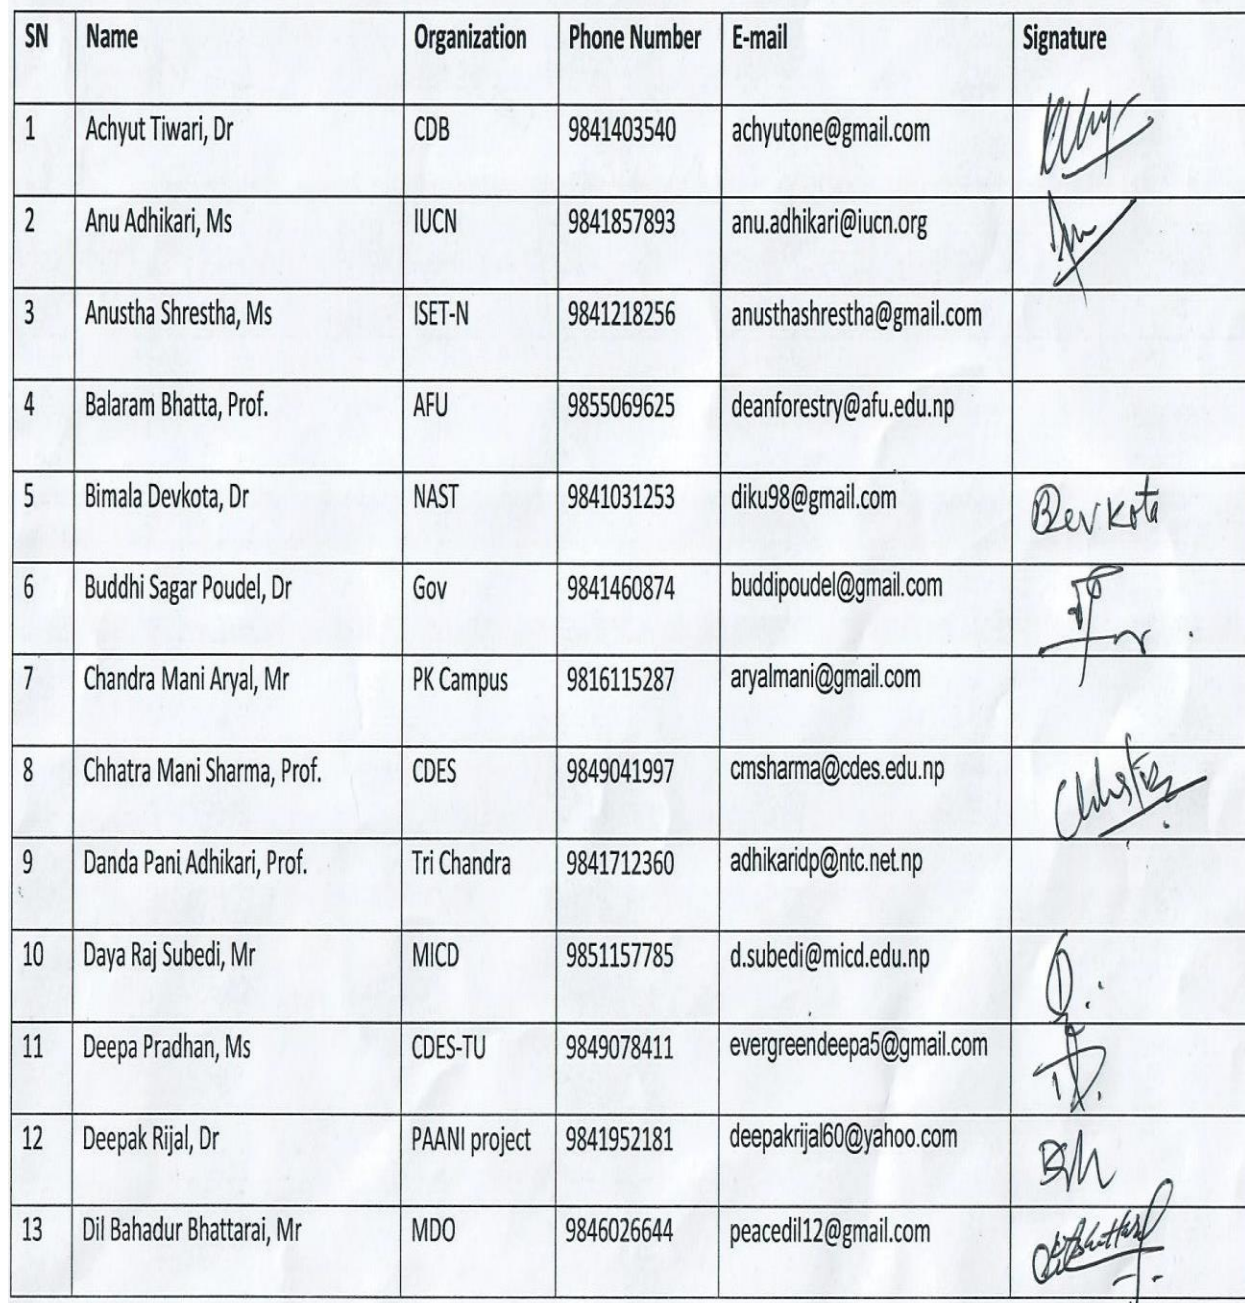 SN Name Organization Phone Number E-mail Signature
1 Achyut Tiwari, Dr CDB 9841403540 achyutone@gmail.com
2 Anu Adhikari, Ms IUCN 9841857893 anu.adhikari@iucn.org
3 Anustha Shrestha, Ms ISET-N 9841218256 anusthashrestha@gmail.com
4 Balaram Bhatta, Prof. AFU 9855069625 deanforestry@afu.edu.np
5 Bimala Devkota, Dr NAST 9841031253 diku98@gmail.com Devkota
6 Buddhi Sagar Poudel, Dr Gov 9841460874 buddipoudel@gmail.com
7 Chandra Mani Aryal, Mr PK Campus 9816115287 aryalmani@gmail.com
8 Chhatra Mani Sharma, Prof. CDES 9849041997 cmsharma@cdes.edu.np
9 Danda Pani Adhikari, Prof. Tri Chandra 9841712360 adhikaridp@ntc.net.np
10 Daya Raj Subedi, Mr MICD 9851157785 d.subedi@micd.edu.np
11 Deepa Pradhan, Ms CDES-TU 9849078411 evergreendeepa5@gmail.com
12 Deepak Rijal, Dr PAANI project 9841952181 deepakrijal60@yahoo.com
13 Dil Bahadur Bhattarai, Mr MDO 9846026644 peacedil12@gmail.com